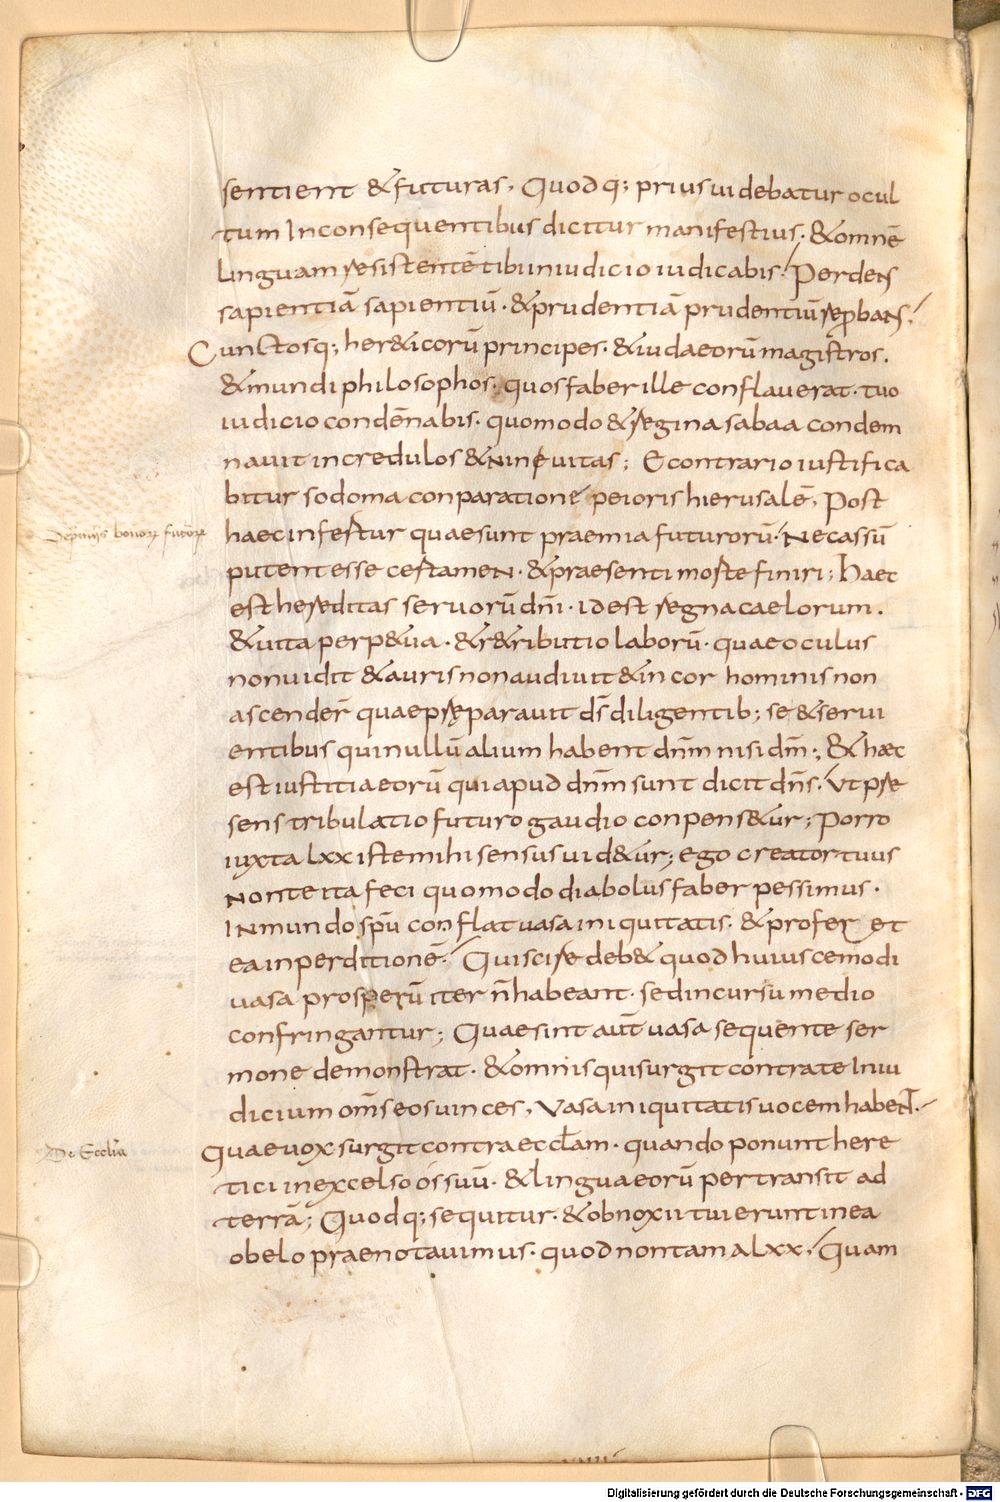 sentient & futuras, Quodq; prius uidebatur ocul
tum In consequentibus dicitur manifestius. & omnē
Linguam resistentē tibi in iudicio iudicabis. Perdens
sapientiā sapientiū. & prudentiā prudentiū reprobans.
Cunctosq; her&icorū principes. & iudaeorū magistros.
& mundi philosophos. quos faber ille conflauerat. tuo
iudicio condēnabis. quomodo & regina sabaa condem
nauit incredulos & nineuitas; E contrario iustifica
bitur sodoma conparatione peioris hierusalē, Post
De p̄mijs bonorꝝ futorꝝ
haec infertur quae sunt praemia futurorū. Ne cassū
putent esse certamen. & praesenti morte finiri; Haec
est hereditas seruorū dn̄i. id est regna caelorum.
& uita perp&ua. & r&ributio laborū. quae oculus
non uidit & auris non audiuit & in cor hominis non
ascender̄ quae praeparauit d̄s diligentib; se & serui
entibus qui nullū alium habent dn̄m nisi dm̄; & haec
est iustitia eorū qui apud dn̄m sunt dicit dn̄s. Ut prae
sens tribulatio futuro gaudio conpens&ur; Porro
iuxta Lxx iste mihi sensus uid&ur; ego creator tuus
Non te ita feci quomodo diabolus faber pessimus.
In mundo spū conflat uasa iniquitatis. & profer& et
ea in perditionē. Qui scire deb& quod huiuscemodi
uasa prosperū iter n̄ habeant. sed in cursu medio
confringantur; Quae sint aut̄ uasa sequente ser
mone demonstrat. & omnis qui surgit contra te In iu
dicium om̄s eos uinces, Vasa iniquitatis uocem habent.
De Eccl̄ia
Quae uox surgit contra eccl̄am. quando ponunt here
tici in excelso os suū. & lingua eorū pertransit ad
terrā; Quodq; sequitur. & obnoxii tui erunt in ea
obelo praenotauimus. quod non tam a Lxx. Quam
Digitalisierung gefördert durch die Deutsche Forschungsgemeinschaft - DFG